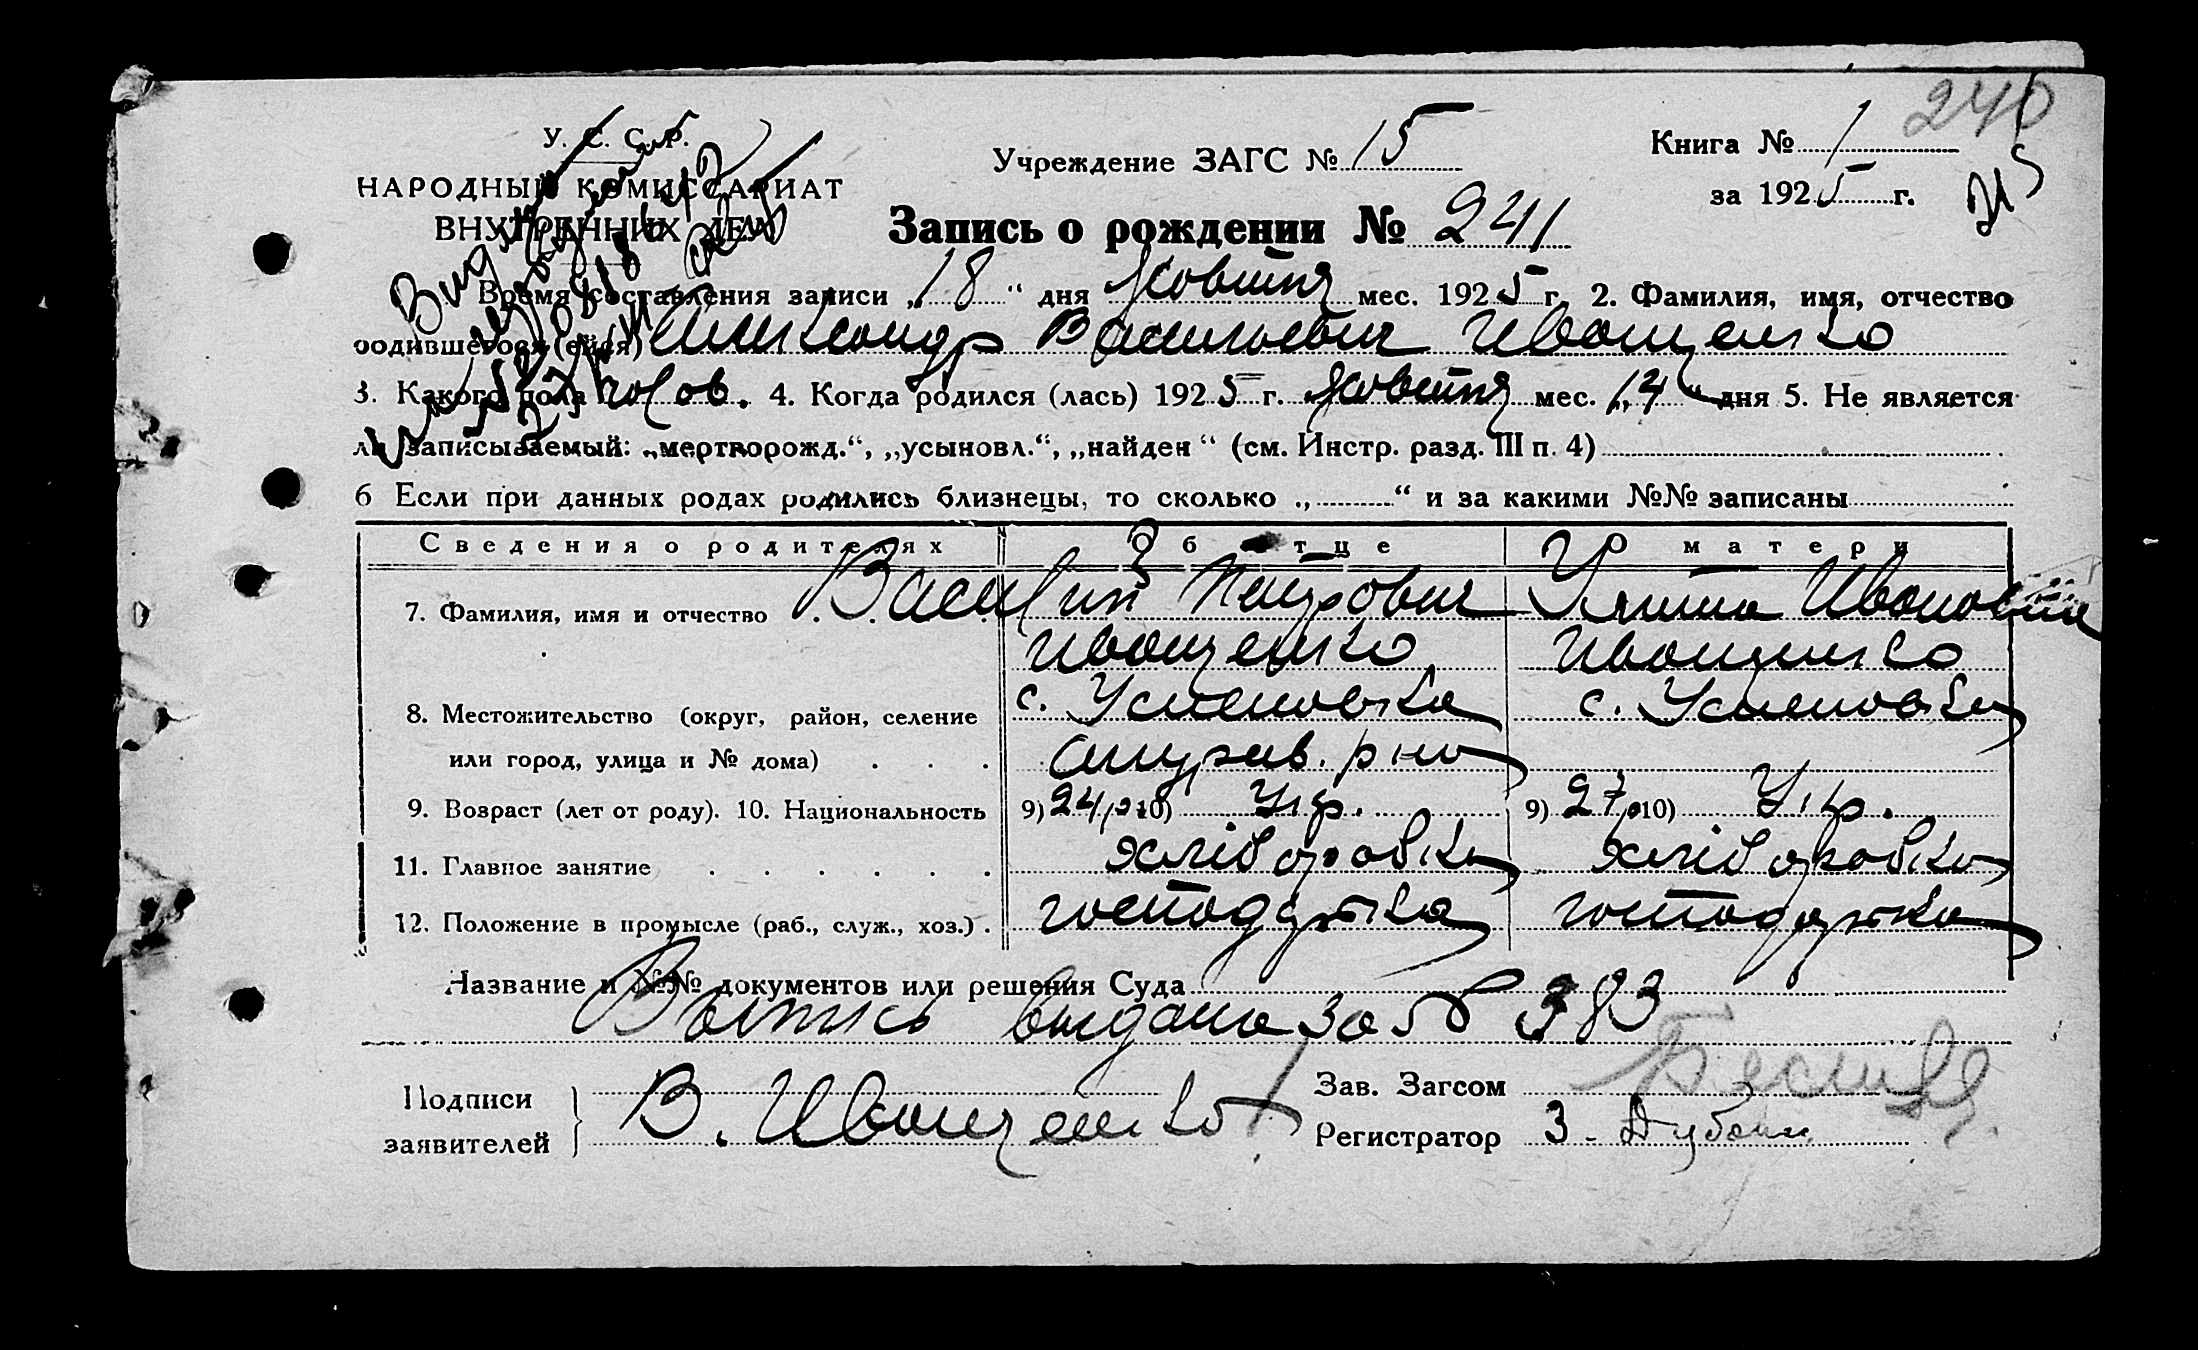 240
У. С. С. Р.
НАРОДНЫЙ КОМИССАРИАТ
ВНУТРЕННИХ ДЕЛ
Учреждение ЗАГС № 15
Книга № 1
за 1925 г.
Запись о рождении № 241
Время составления записи „18“ дня Жовтня мес. 1925 г. 2. Фамилия, имя, отчество
родившегося (ейся) Олександр Васильевич Иващенко
3. Какого пола чолов. 4. Когда родился (лась) 1925 г. Жовтня мес. „14“ дня 5. Не является
ли записываемый: „мертворожд.“, „усыновл.“, „найден“ (см. Инстр. разд. III п. 4)
6 Если при данных родах родились близнецы, то сколько „ “ и за какими №№ записаны
Сведения о родителях Об отце О матери
7. Фамилия, имя и отчество Василий Петрович Улита Ивановна
Иващенко Иващенко
8. Местожительство (округ, район, селение с. Успеновка с. Успеновка
или город, улица и № дома)
9. Возраст (лет от роду). 10. Национальность 9) 24 10) Укр. 9) 27 10) Укр.
11. Главное занятие хліборобка хліборобка
12. Положение в промысле (раб., служ., хоз.) господарка господарка
Название и №№ документов или решения Суда
Выпись выдана за № 383
Подписи
заявителей В. Иващенко
Зав. Загсом
Регистратор З. Дубовик